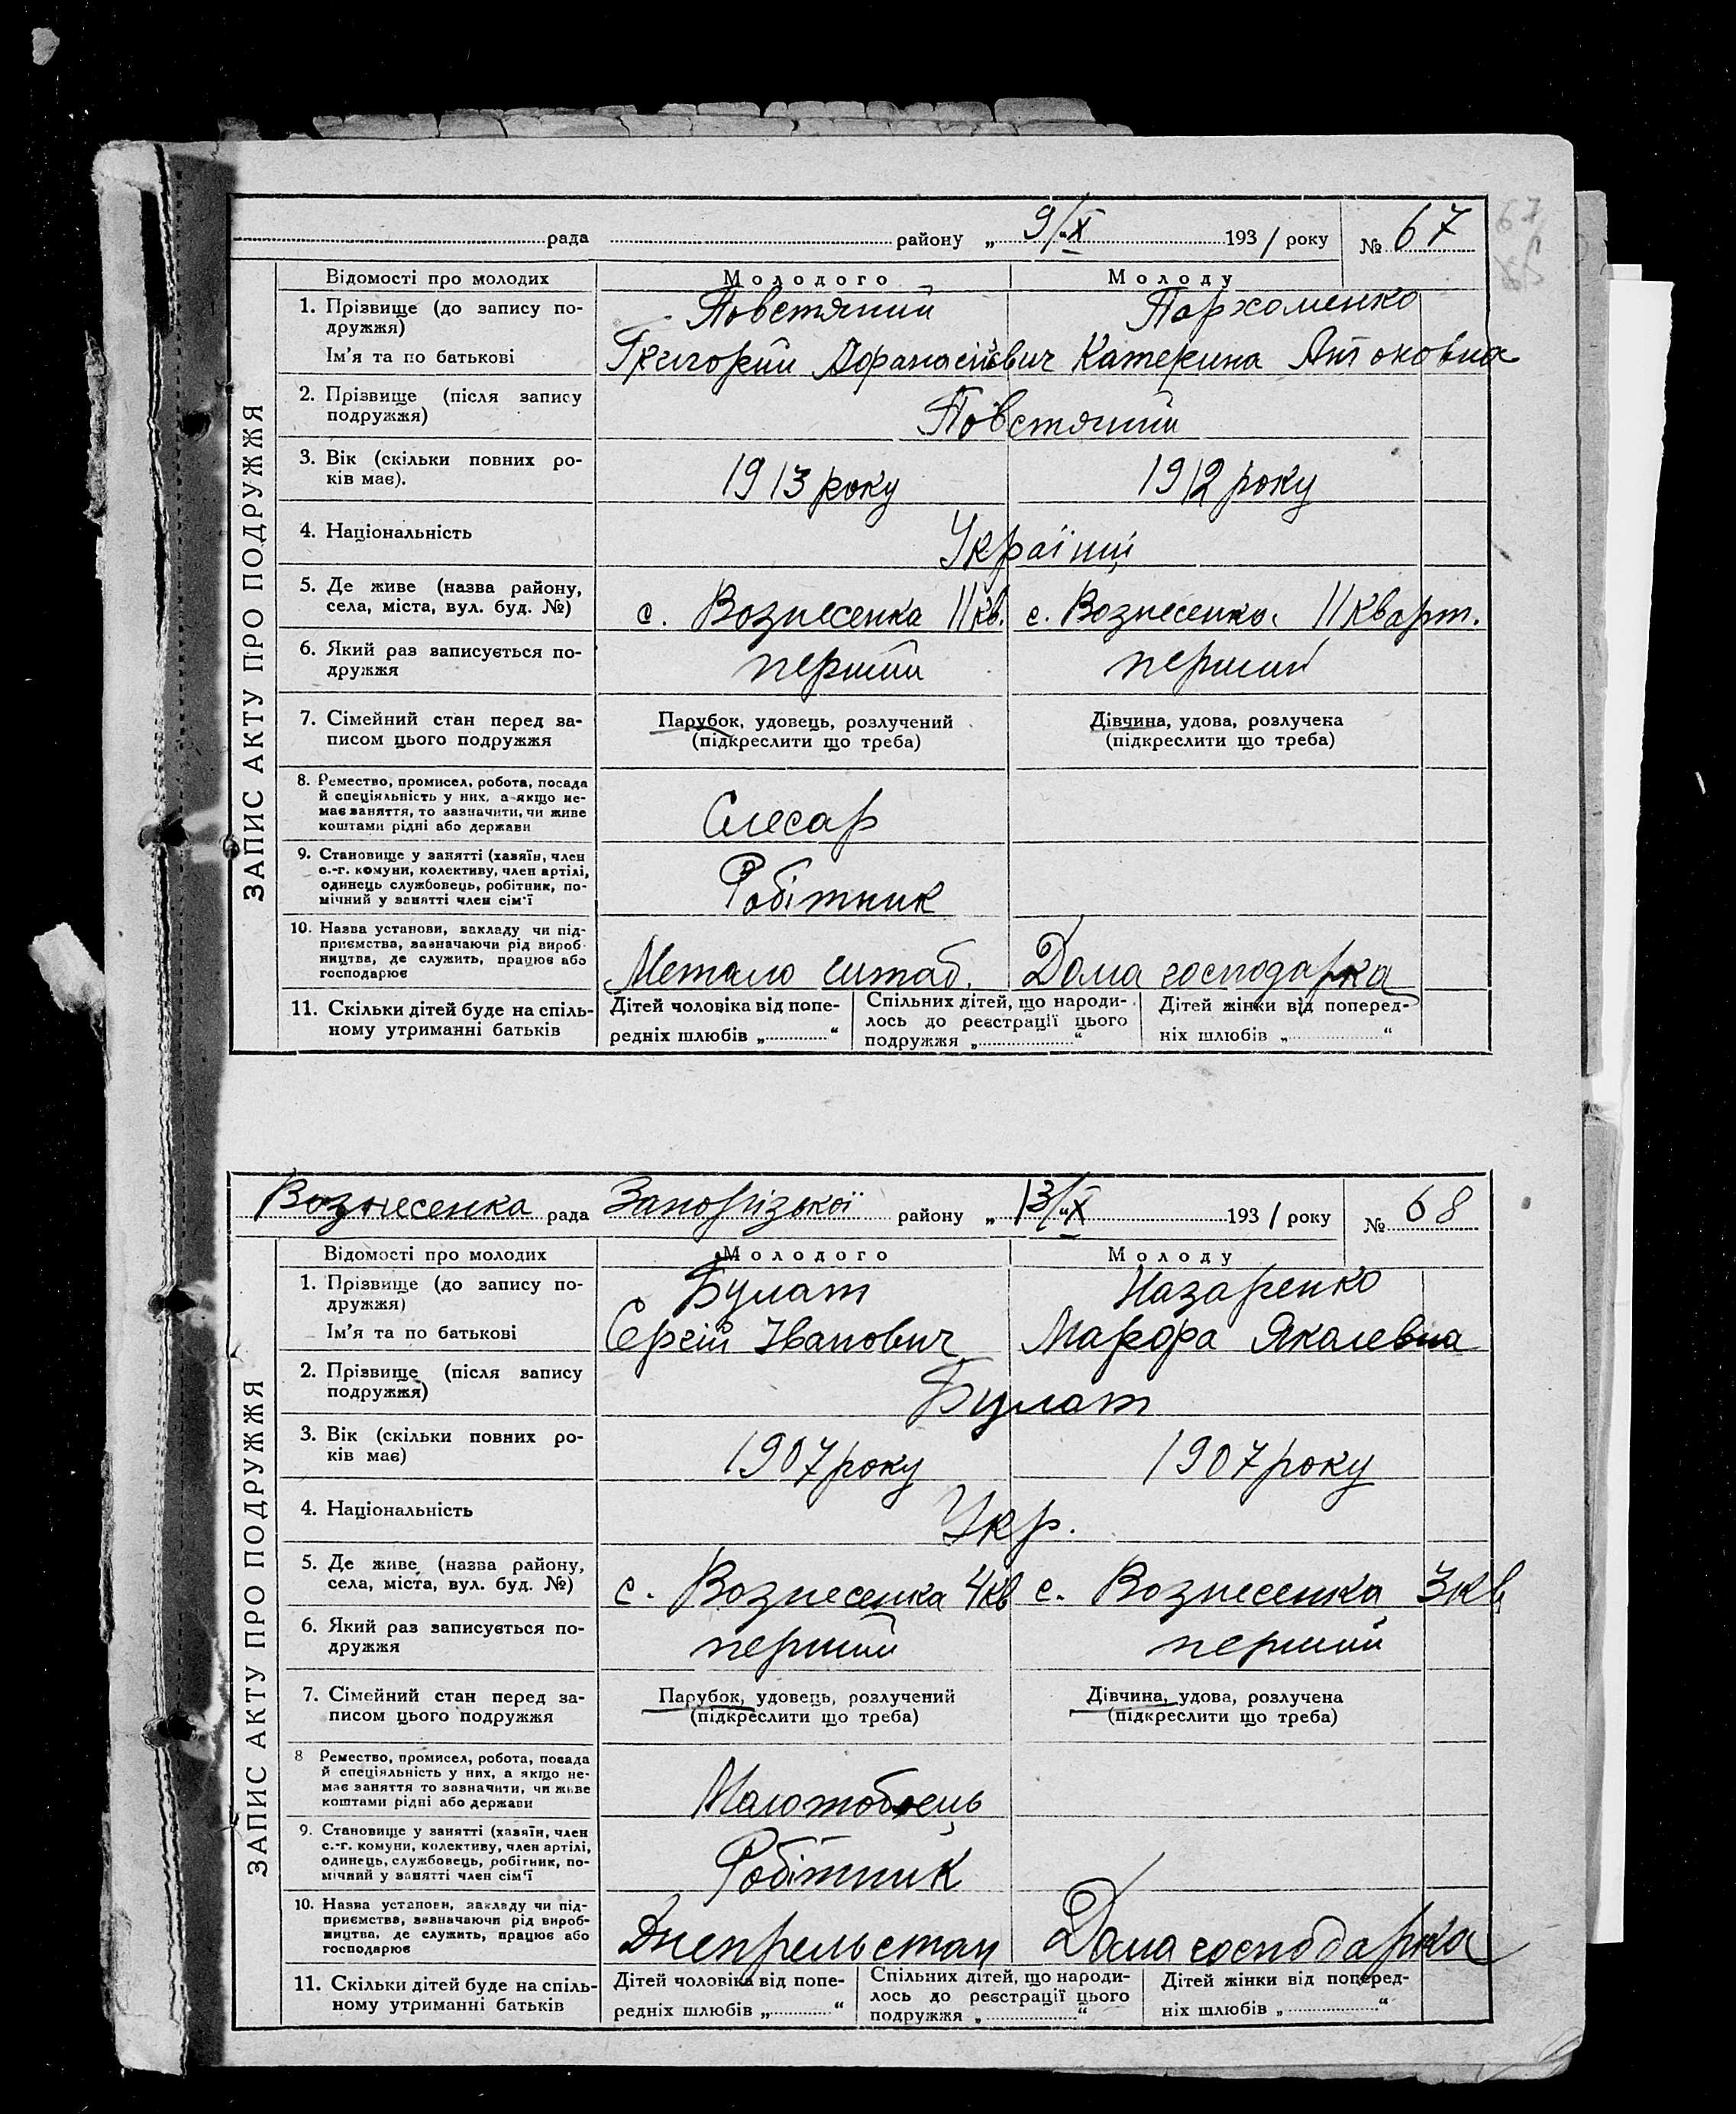 рада району „ 9/"X 1931 року № 67
67
ЗАПИС АКТУ ПРО ПОДРУЖЖЯ
Відомості про молодих Молодого Молоду
1. Прізвище (до запису по-
дружжя)
Повстяний Пархоменко
Ім'я та по батькові Григорий Афанасійович Катерина Антоновна
2. Прізвище (після запису
подружжя)
Повстяний
3. Вік (скільки повних ро-
ків має).
1913 року 1912 року
4. Національність Українці
5. Де живе (назва району,
села, міста, вул. буд. №)
с. Вознесенка 11 кв. с. Вознесенка 11 кварт.
6. Який раз записується по-
дружжя
перший перший
7. Сімейний стан перед за-
писом цього подружжя
Парубок, удовець, розлучений
(підкреслити що треба)
Дівчина, удова, розлучека
(підкреслити що треба)
8. Ремество, промисел, робота, посада
й спеціяльність у них, а якщо не-
має заняття, то зазначити, чи живе
коштами рідні або держави
Слесар
9. Становище у занятті (хазяїн, член
с.-г. комуни, колективу, член артілі,
одинець службовець, робітник, по-
мічний у занятті член сім'ї
Робітник
10. Назва установи, закладу чи під-
приємства, зазначаючи рід вироб-
ництва, де служить, працює або
господарює
Метало штаб. Дома господарка
11. Скільки дітей буде на спіль-
ному утриманні батьків
Дітей чоловіка від попе-
редніх шлюбів „ “
Спільних дітей, що народи-
лось до реєстрації цього
подружжя „ “
Дітей жінки від поперед-
ніх шлюбів „ “
Вознесенка рада Запорізької району „ 13/"X 1931 року № 68
ЗАПИС АКТУ ПРО ПОДРУЖЖЯ
Відомості про молодих Молодого Молоду
1. Прізвище (до запису по-
дружжя)
Булат Назаренко
Ім'я та по батькові Сергій Іванович Марфа Якалевна
2. Прізвище (після запису
подружжя)
Булат
3. Вік (скільки повних ро-
ків має)
1907 року 1907 року
4. Національність Укр.
5. Де живе (назва району,
села, міста, вул. буд. №)
с. Вознесенка 4 кв с. Вознесенка 3 кв
6. Який раз записується по-
дружжя
перший перший
7. Сімейний стан перед за-
писом цього подружжя
Парубок, удовець, розлучений
(підкреслити що треба)
Дівчина, удова, розлучена
(підкреслити що треба)
8 Ремество, промисел, робота, посада
й спеціяльність у них, а якщо не-
має заняття то зазначити, чи живе
коштами рідні або держави
Молотобоець
9. Становище у занятті (хазяїн, член
с.-г. комуни, колективу, член артілі,
одинець, службовець, робітник, по-
мічний у занятті член сім'ї
Робітник
10. Назва установи, закладу чи під-
приємства, зазначаючи рід вироб-
ництва, де служить, працює або
господарює
Днепрельстан Дома господарка
11. Скільки дітей буде на спіль-
ному утриманні батьків
Дітей чоловіка від попе-
редніх шлюбів „ “
Спільних дітей, що народи-
лось до реєстрації цього
подружжя „ “
Дітей жінки від поперед-
ніх шлюбів „ “